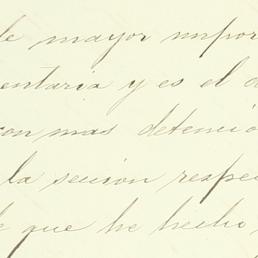 de mayor impor
entaria y es el d
con mas detenció
la sección respec
e que he hecho